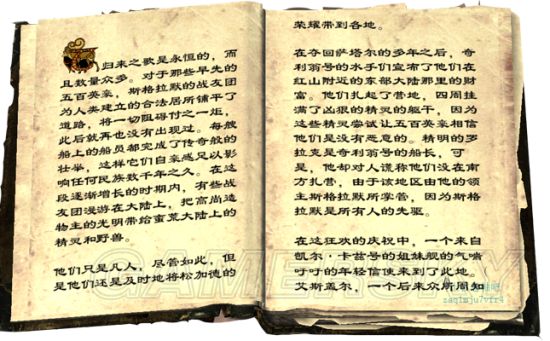 归来之歌是永恒的，而
且数量众多。对于那些早先的
五百英豪，斯格拉默的战友团
为人类建立的合法居所铺平了
道路，将一切阻碍付之一炬，
此后就再也没有出现过。每艘
船上的船员都完成了传奇般的
壮举，这样它们自豪感足以影
响任何民族数千年之久。在这
段逐渐增长的时期内，有些战
友团漫游在大陆上，把高尚造
物主的光明带给蛮荒大陆上的
精灵和野兽。
他们只是凡人，尽管如此，但
是他们还是及时地将松加德的
荣耀带到各地。
在夺回萨塔尔的多年之后，奇
利翁号的水手们宣布了他们在
红山附近的东部大陆那里的财
富。他们扎起了营地，四周挂
满了凶狠的精灵的躯干，因为
这些精灵尝试让五百英豪相信
他们是没有恶意的。精明的罗
拉克是奇利翁号的船长，可
是，他却对人谎称他们没在南
方扎营，由于该地区由他的领
主斯格拉默所掌管，因为斯格
拉默是所有人的先驱。
在这狂欢的庆祝中，一个来自
凯尔·卡兹号的姐妹舰的气喘
吁吁的年轻信使来到了此地。
艾斯盖尔，一个后来众所周知
GAMERSKY
zaqimju7vfr4